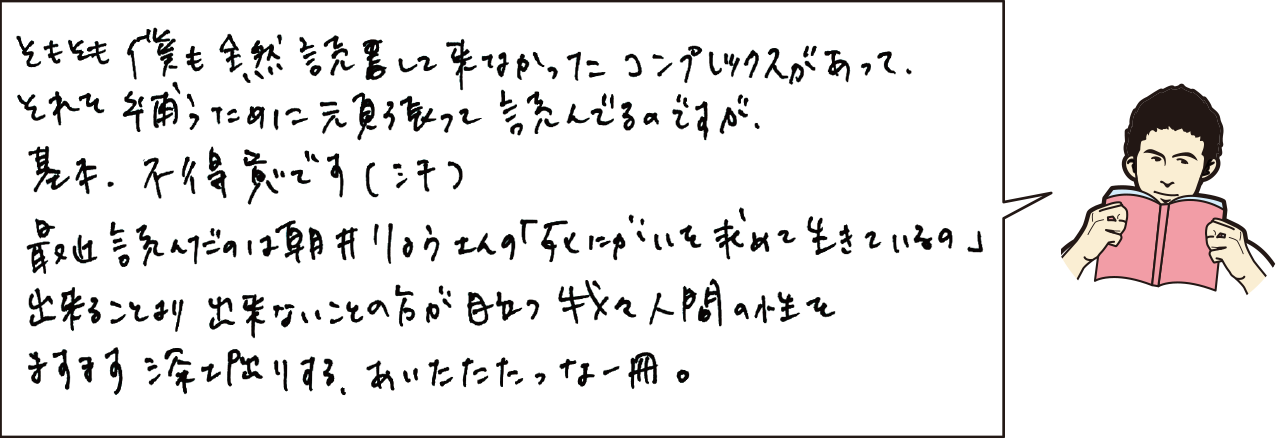 そもそも僕も全然読書して来なかったコンプレックスがあって、
それを補うために元頁張って読んでるのですが、
基本、不得意です(汗)
最近読んだのは朝井リョウさんの「死にがいを求めて生きているの」
出来ることより出来ないことの方が目立つ我々人間の性を
ますます深掘りする、あいたたたっな一冊。